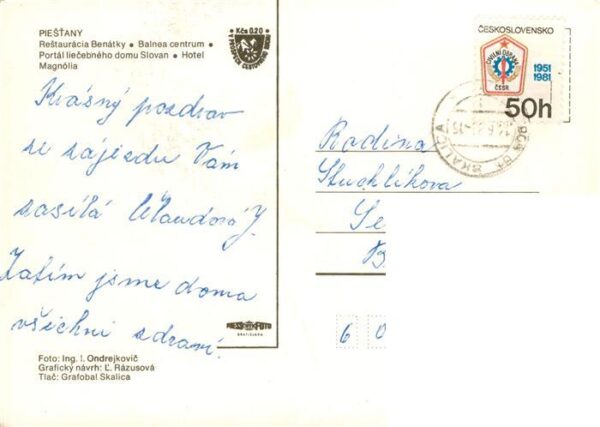 PIEŠŤANY
Reštaurácia Benátky • Balnea centrum •
Portál liečebného domu Slovan • Hotel
Magnólia
Kčs 0,20
ČESKOSLOVENSKO
CIVILNÍ OBRANA
ČSSR
1951
1981
50h
SKALICA
Krásný pozdrav
ze zájezdu Vám
zasílá J.
Zatím jsme doma
všichni zdraví.
Rodina
Stuchlíkova
Se
B
6 0
PRESSFOTO
BRATISLAVA
Foto: Ing. I. Ondrejkovič
Grafický návrh: Ľ. Rázusová
Tlač: Grafobal Skalica